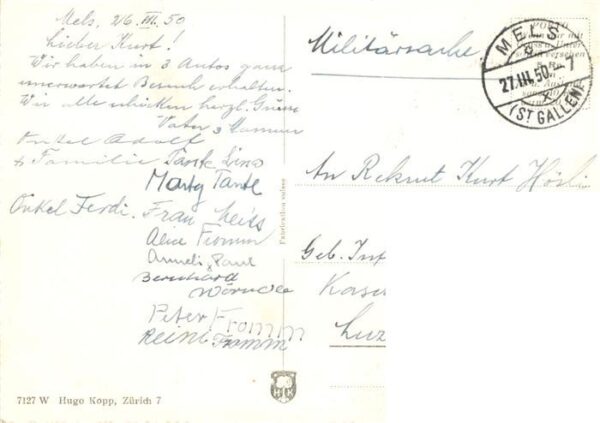 Mels, 26. III. 50
Lieber Kurt!
Wir haben in 3 Autos ganz
unerwartet Besuch erhalten.
Wir alle schicken herzl. Grüsse
Vater & Mamma
Onkel Adolf
& Familie Tante Lina
Marty Tante
Onkel Ferdi. Frau
Alice Fromm
Anneli, Paul
Bernhard
Peter Fromm
Reini Fromm
7127 W Hugo Kopp, Zürich 7
Fabrication suisse
HK
Militärsache
MELS
27.III.50
7
(ST. GALLEN)
An Rekrut Kurt
Geb. Inf
Kaser
Luz